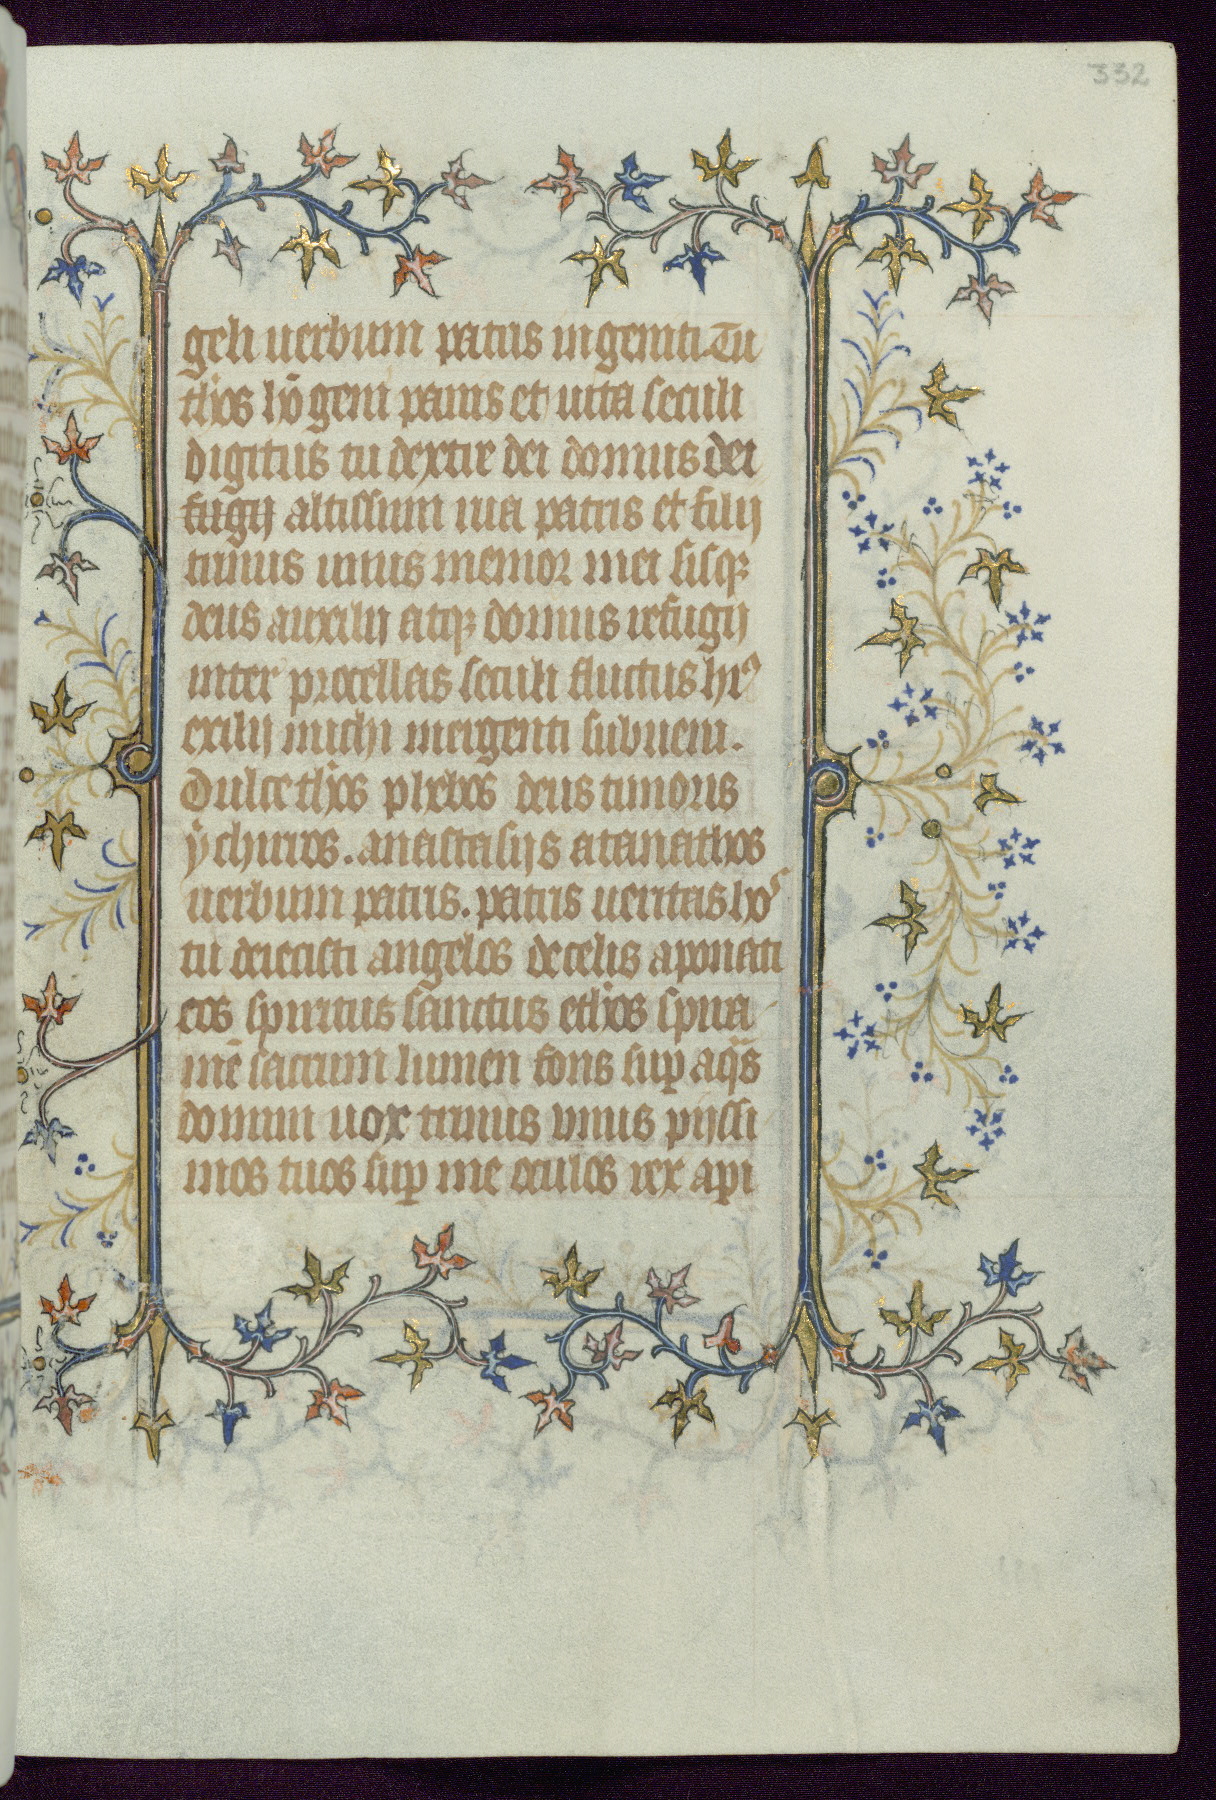 332
geli uerbum patris ingeniti. Tu
theos hō geni panis et uita seculi
digitus tu dextre dei domus dei
fugij altissimi uia patris et filij
trinus unus memor mei sisq;
deus auxilij atq; domus refugij
inter procellas seculi fluctus hi⁹
exilij michi mergenti subueni.
Dulce theos plebos deus timoris
ychiros. anastasijs atanathos
uerbum patris. patris ueritas hoˢ
tu deiecisti angelos de celis aponati
eos spiritus sanctus etheos spira
mē sacrum lumen fons sup aqͣs
domini uox trinus vnus pijssi
mos tuos sup me oculos rex api